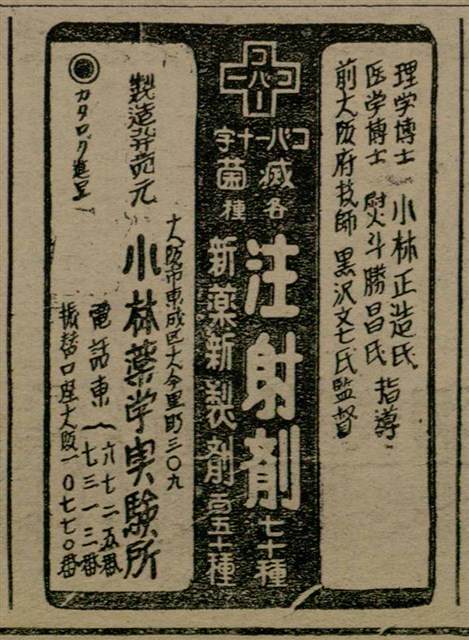 理学博士 小林正造氏
医学博士 熨斗勝昌氏 指導
前大阪府技師 黒沢文七氏監督
コバー
コバー
コバー十字
滅菌
各種
注射剤 七十種
新薬新製剤 五十種
大阪市東成区大今里町三〇九
製造発売元 小林薬学実験所
電話東 六七二五番
七三一三番
振替口座大阪一〇七七〇番
カタログ進呈